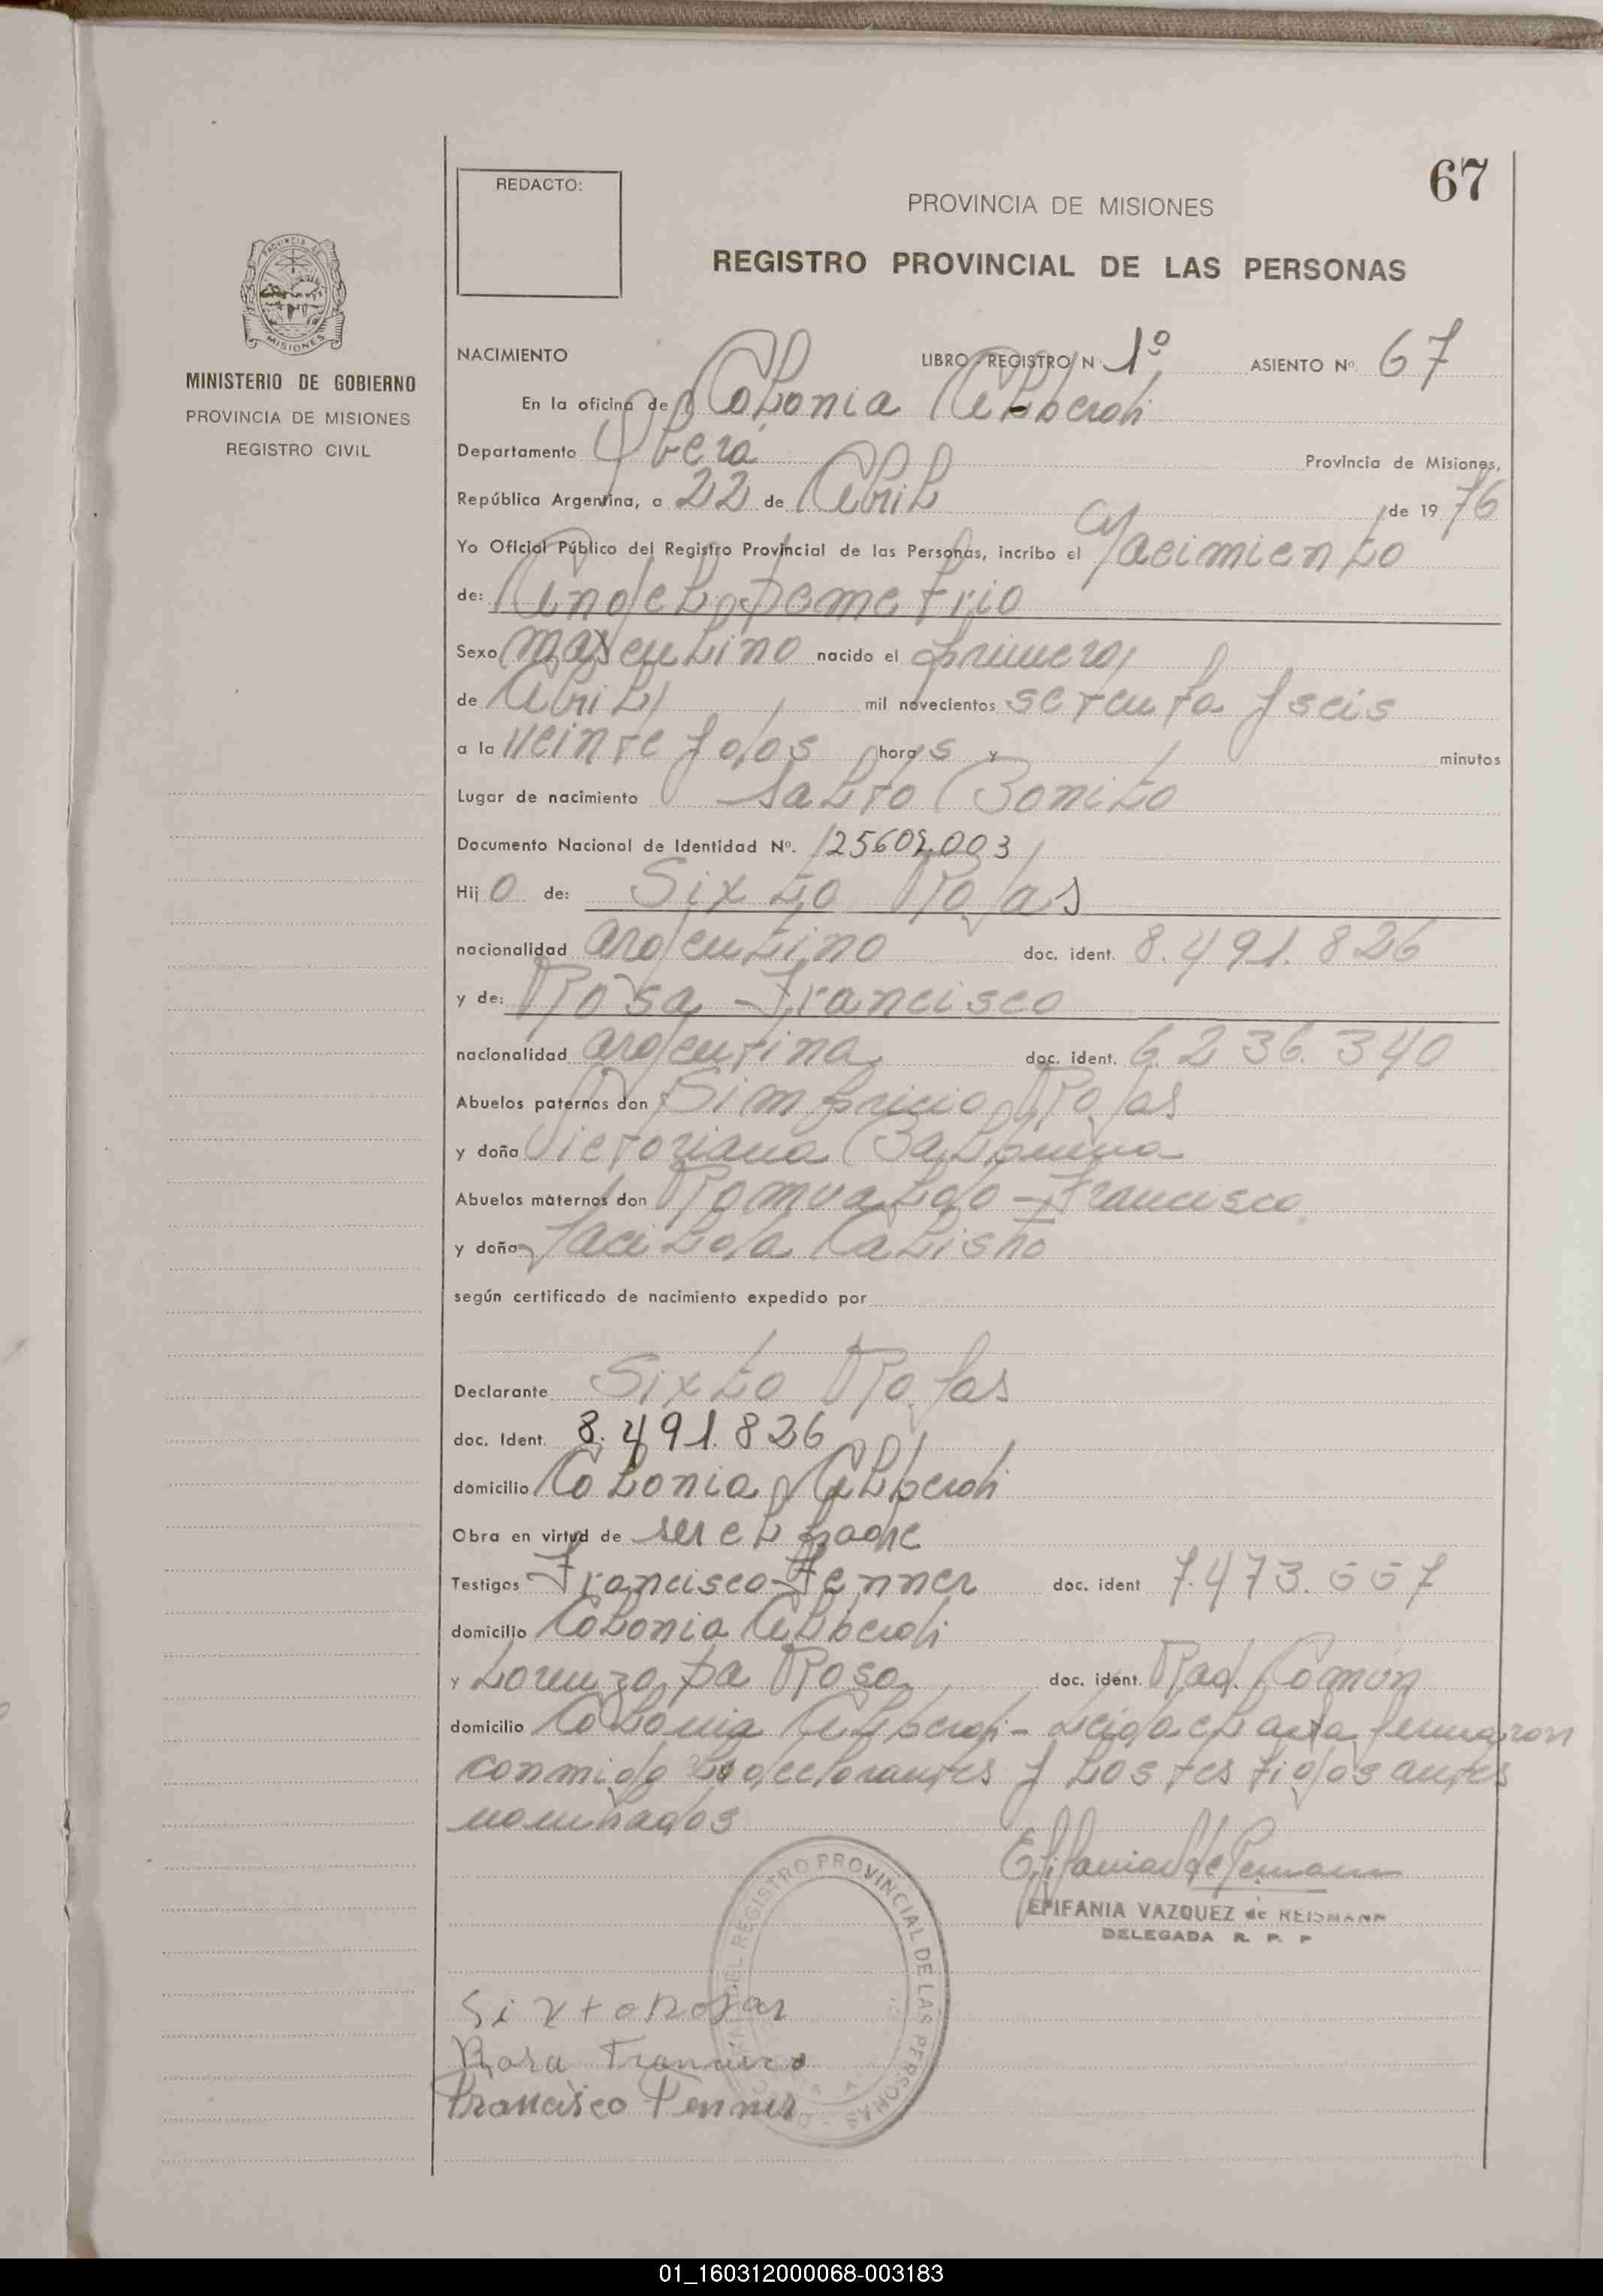 67
REDACTO:
PROVINCIA DE MISIONES
REGISTRO PROVINCIAL DE LAS PERSONAS
PROVINCIA DE
MISIONES
MINISTERIO DE GOBIERNO
PROVINCIA DE MISIONES
REGISTRO CIVIL
NACIMIENTO LIBRO REGISTRO N 1º ASIENTO Nº 67
En la oficina de Colonia Alberdi
Departamento Oberá Provincia de Misiones,
República Argentina, a 22 de Abril de 1976
Yo Oficial Público del Registro Provincial de las Personas, incribo el Nacimiento
de: Angel Demetrio
Sexo masculino nacido el primero
de Abril mil novecientos setenta y seis
a la veinte y dos horas y minutos
Lugar de nacimiento Salto Bonito
Documento Nacional de Identidad Nº. 25602.003
Hijo de: Sixto Rojas
nacionalidad argentino doc. ident. 8.491.826
y de: Rosa Francisco
nacionalidad argentina doc. ident. 6.236.340
Abuelos paternos don Simpricio Rojas
y doña Victoriana Balbuena
Abuelos maternos don Romualdo Francisco
y doña Jacilda Calisto
según certificado de nacimiento expedido por
Declarante Sixto Rojas
doc. Ident. 8.491.826
domicilio Colonia Alberdi
Obra en virtud de ser el padre
Testigos Francisco Fenner doc. ident 7.473.557
domicilio Colonia Alberdi
y Lorenzo Da Rosa doc. ident. Rad. Común
domicilio Colonia Alberdi - Leida el acta firmaron
conmigo declarantes y los testigos antes
nombrados
EPIFANIA VAZQUEZ de REISMANN
DELEGADA R. P. P
DEL REGISTRO PROVINCIAL DE LAS PERSONAS
Sixto Rojas
Rosa Francisco
Francisco Fenner
01_160312000068-003183